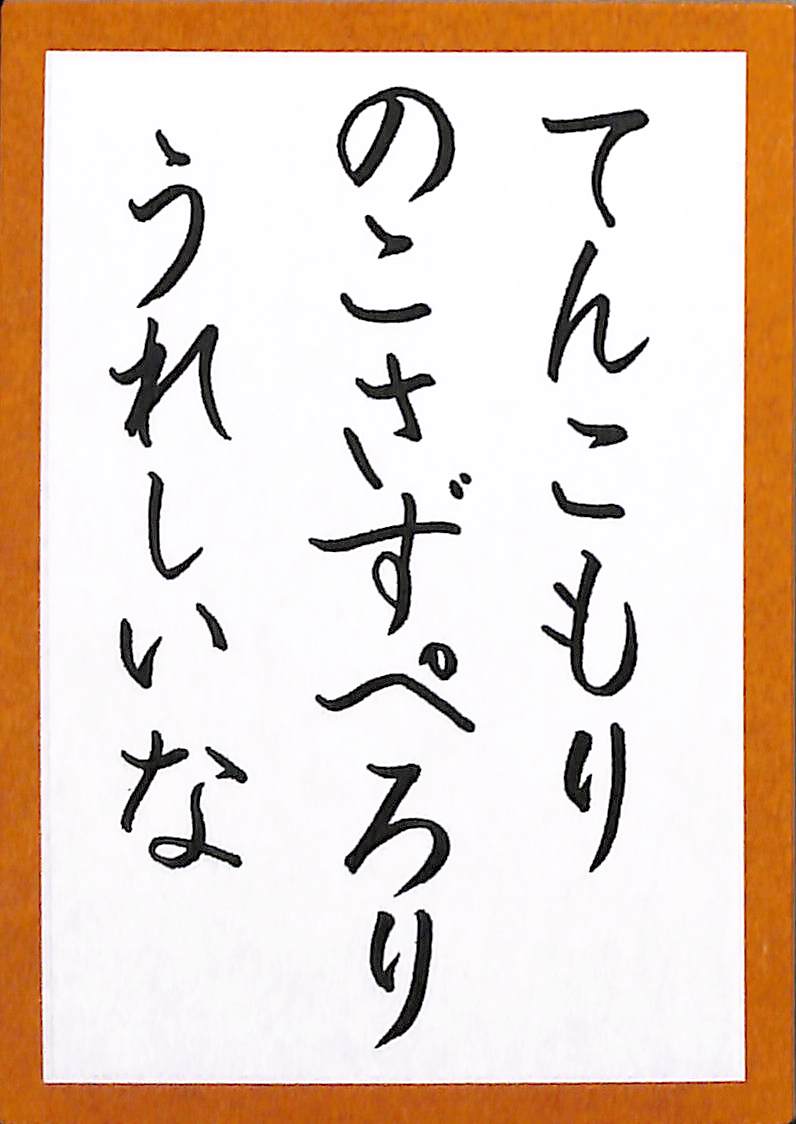 てんこもり
のこさずぺろり
うれしいな